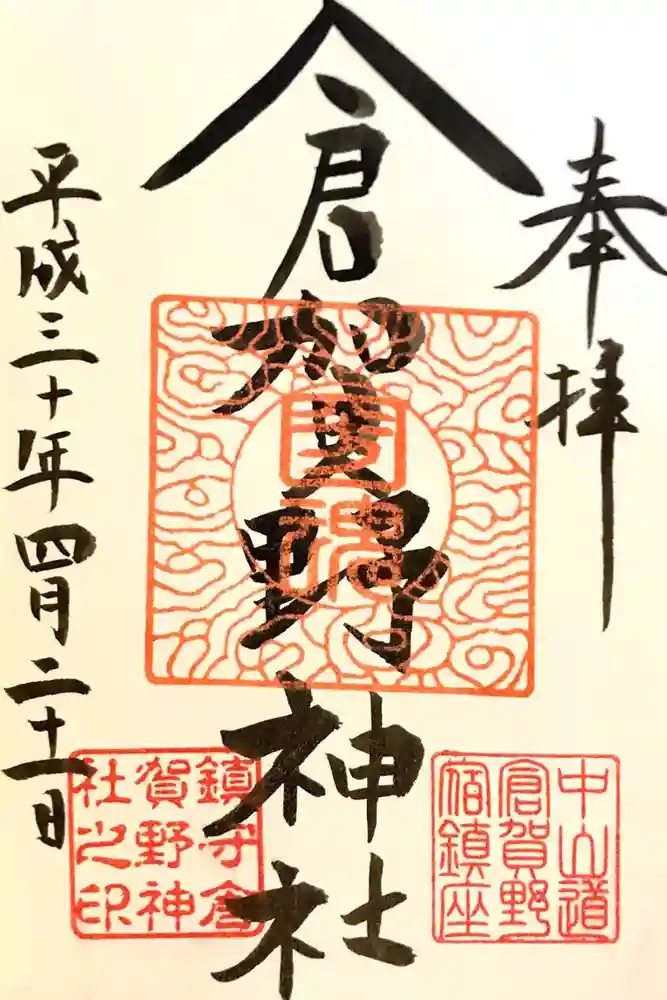 奉拝
倉賀野神社
平成三十年四月二十一日
中山道
倉賀野
宿鎮座
鎮守倉
賀野神
社之印